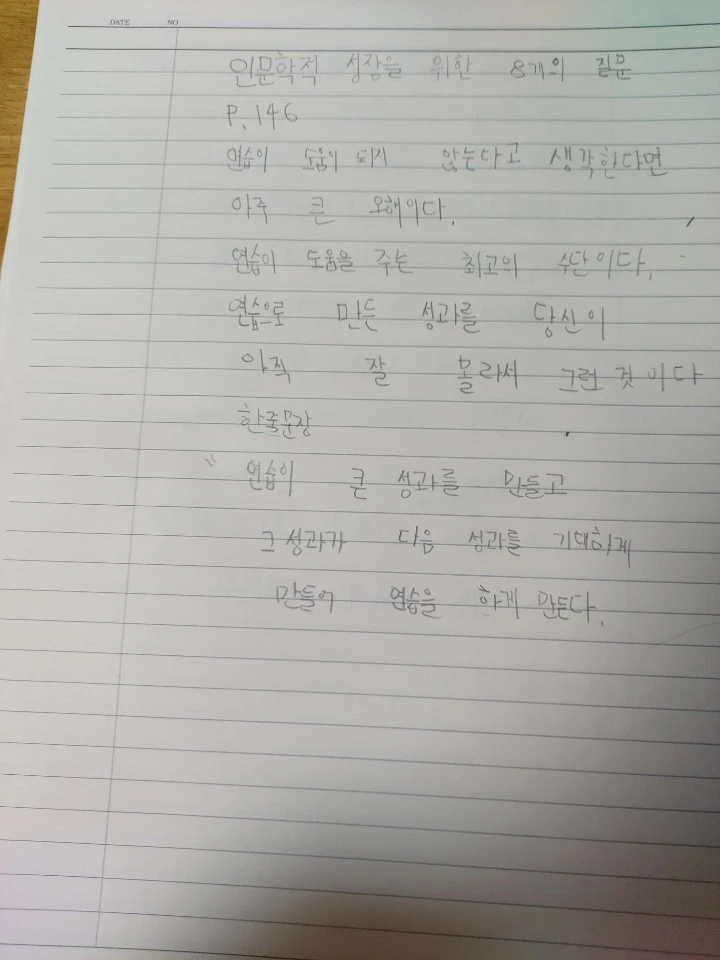 DATE NO
인문학적 성장을 위한 8개의 질문
P. 146
연습이 도움이 되지 않는다고 생각한다면
아주 큰 오해이다.
연습이 도움을 주는 최고의 수단이다.
연습으로 만든 성과를 당신이
아직 잘 몰라서 그런 것이다
한줄문장
" 연습이 큰 성과를 만들고
그 성과가 다음 성과를 기대하게
만들어 연습을 하게 만든다.